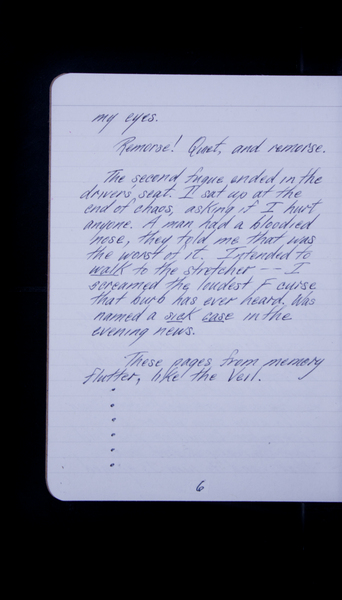 my eyes.
Remorse! Quiet, and remorse.
The second fugue ended in the
drivers' seat. I sat up at the
end of chaos, asking if I hurt
anyone. A man had a bloodied
nose, they told me that was
the worst of it. Intended to
walk to the stretcher -- I
screamed the loudest F curse
that burb has ever heard. Was
named a sick case in the
evening news.
These pages from memory
flutter, like the Veil.
•
•
•
•
•
•
6